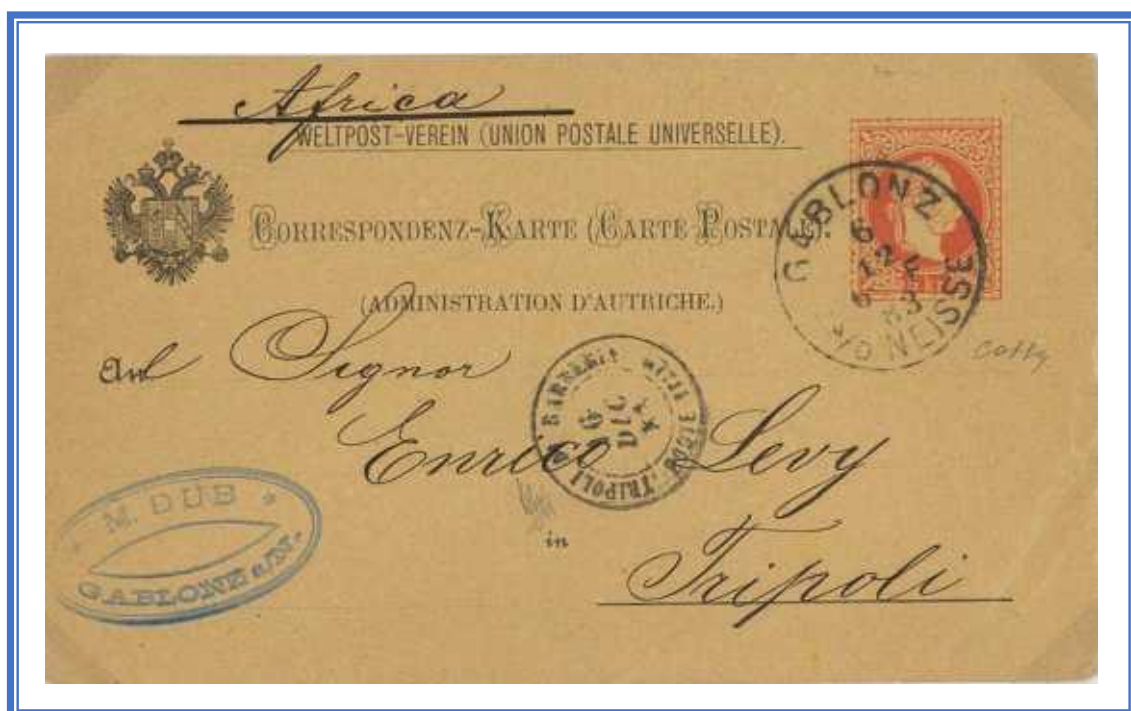 Africa
WELTPOST-VEREIN (UNION POSTALE UNIVERSELLE).
CORRESPONDENZ-KARTE (CARTE POSTALE).
(ADMINISTRATION D'AUTRICHE.)
GABLONZ
6
12
83
A/D NEISSE
An Signor
Enrico Levy
in
Tripoli
TRIPOLI DI BARBERIA
DIC
M. DUB
GABLONZ a/N.